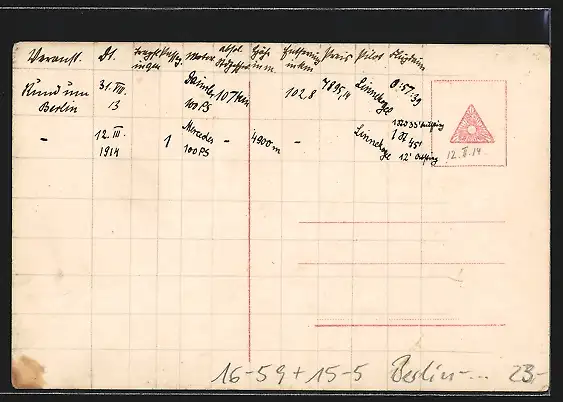 Veranst. Dt. Motor absol. Höhe Entfernung Preis Pilot Flugdauer
in m in km
Rund um 31. VIII. Daimler 107 km 102 8 7895,14 Linnekogel 0:57:39
Berlin 13 100 PS
- 12. III. 1 Mercedes - 4900 m - Linnekogel 1 St 45'
1914 100 PS 12'
12. II. 14
16-59 + 15-5 Berlin-... 23.-